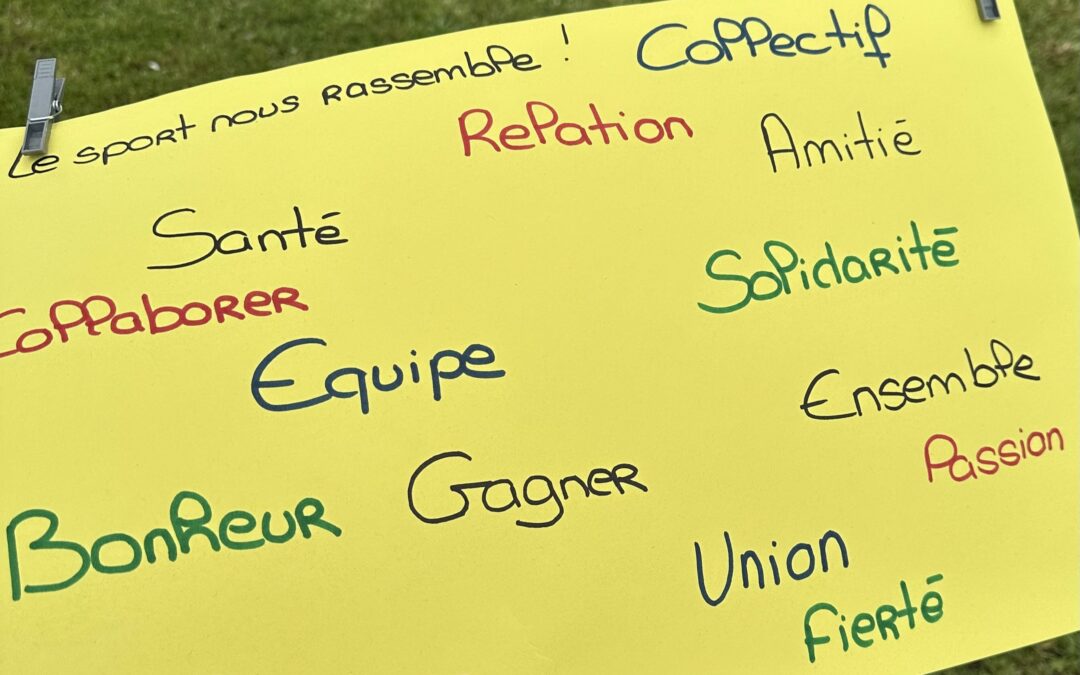 Le sport nous rassemble !
Collectif
Relation
Amitié
Santé
Solidarité
Collaborer
Equipe
Ensemble
Passion
Gagner
Bonheur
Union
fierté